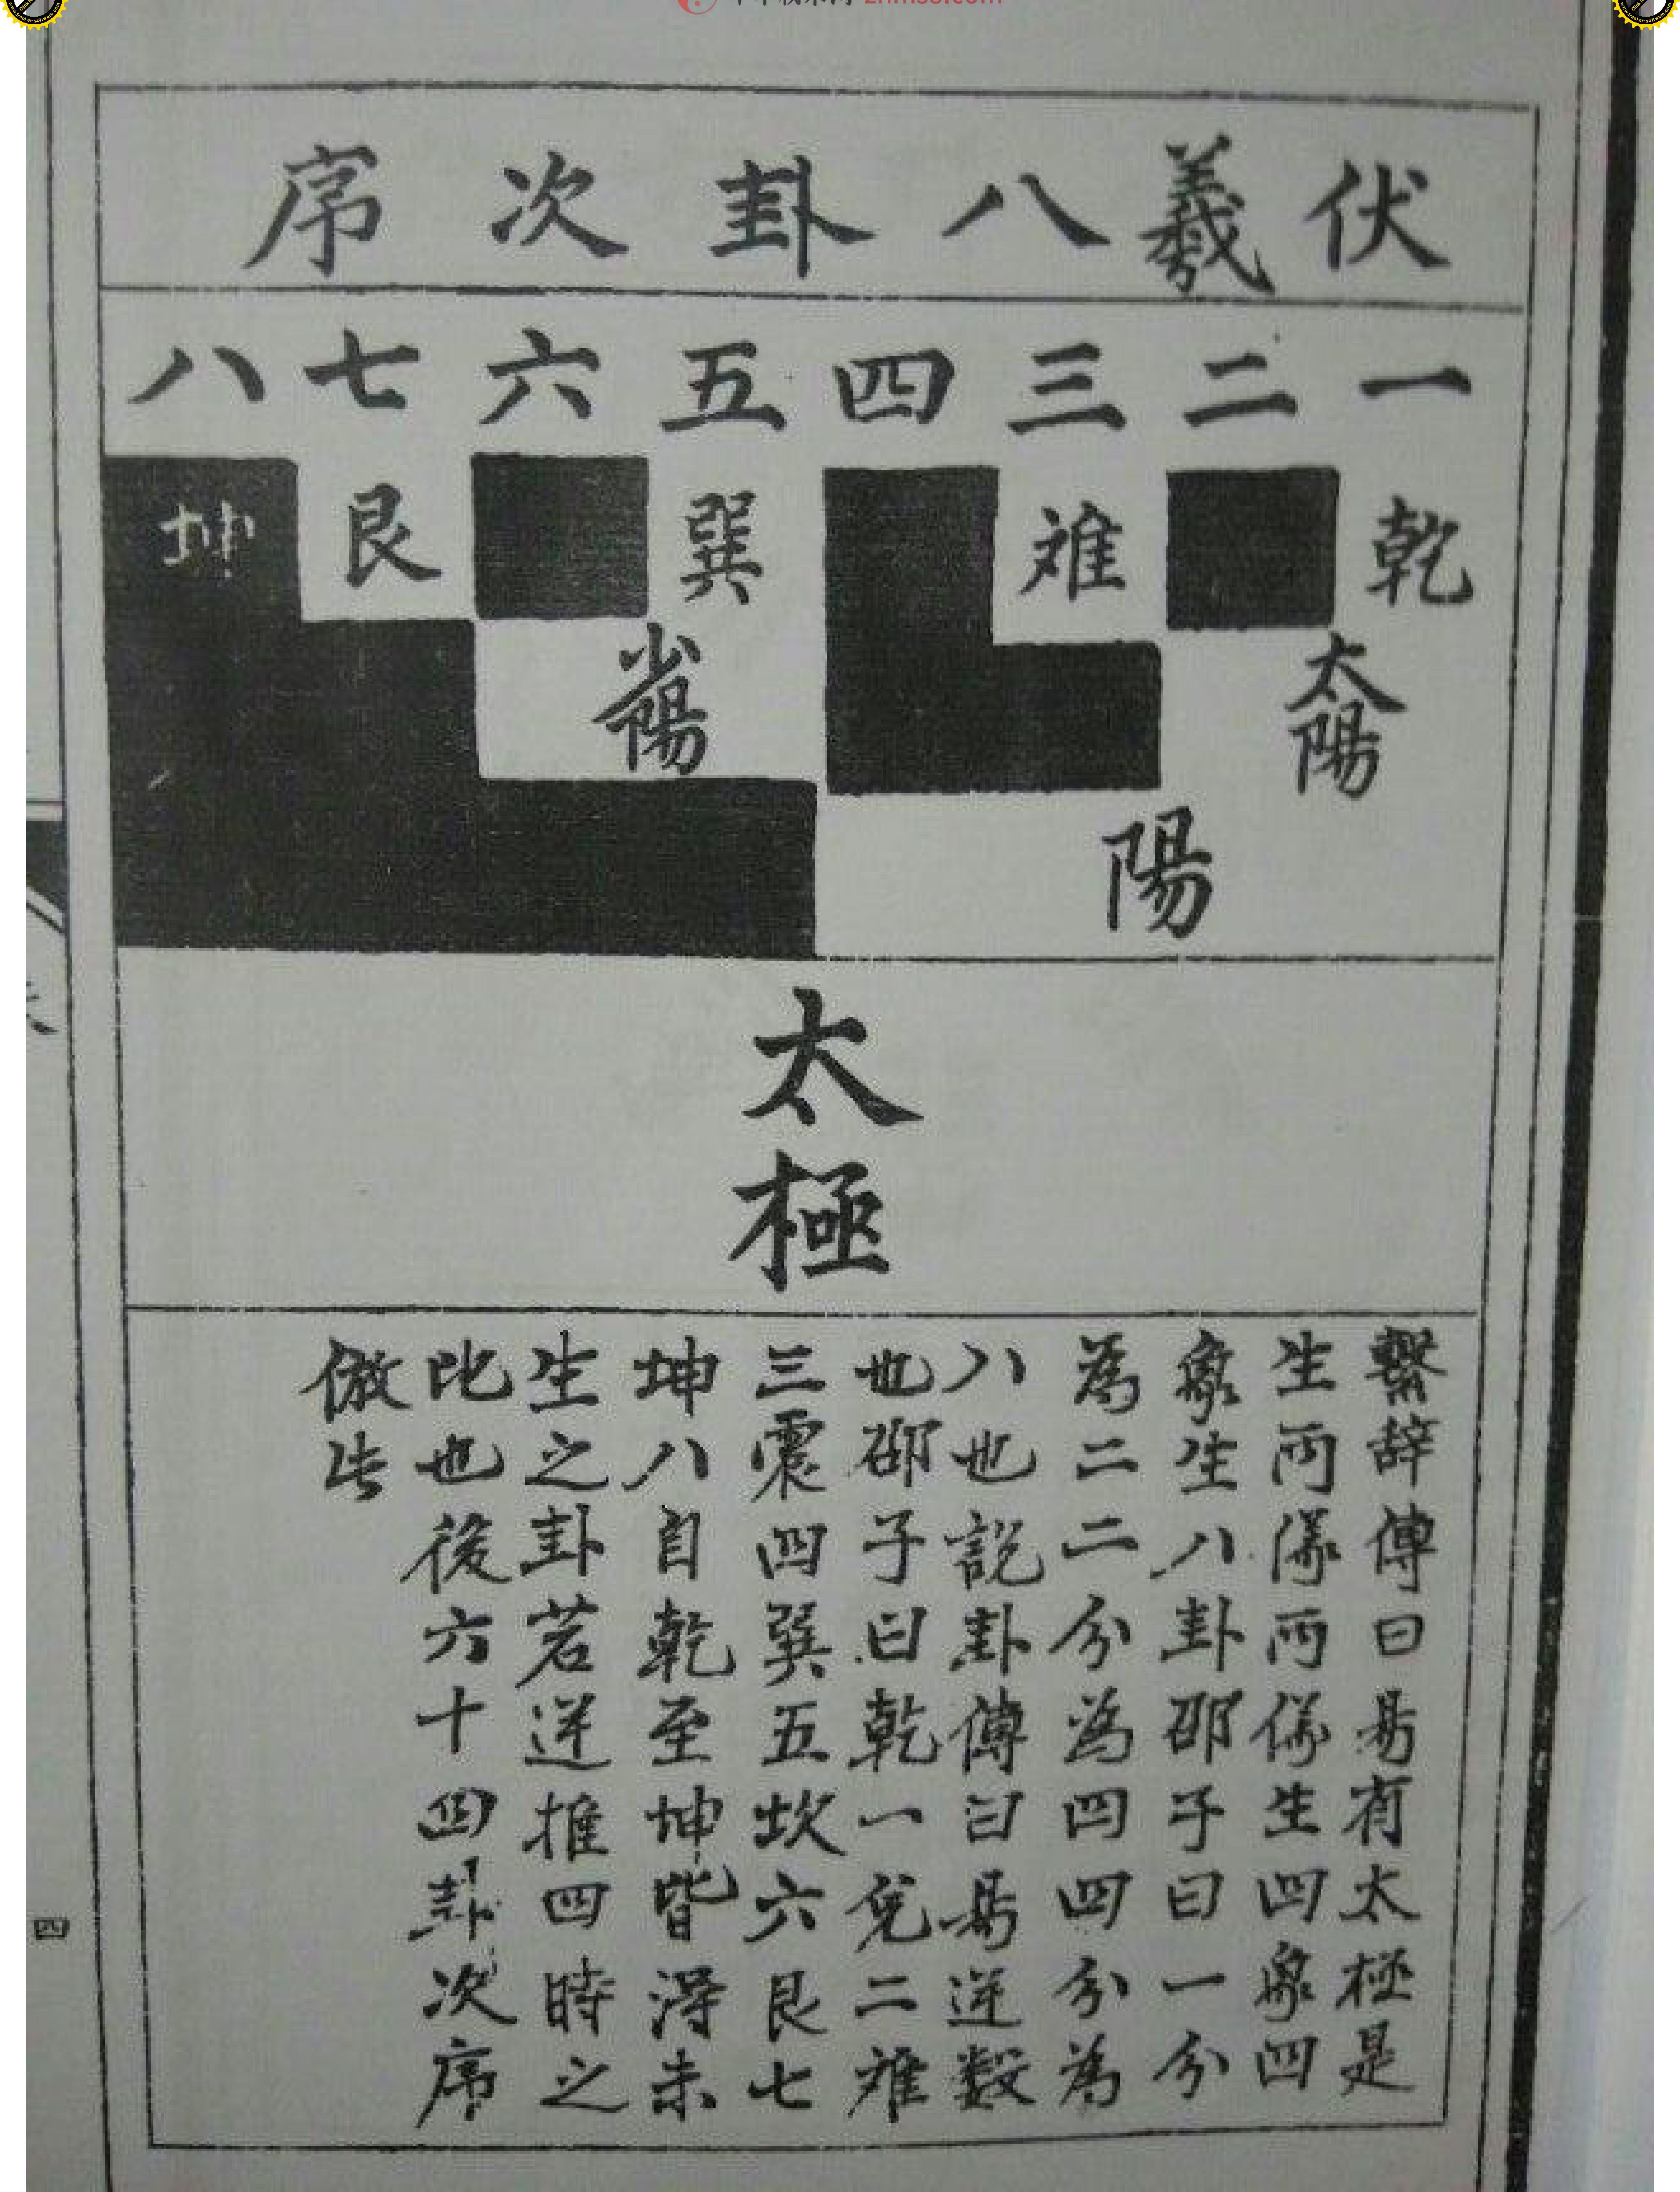 伏羲八卦次序
一二三四五六七八
乾 难 巽 艮 坤
太陽 少陽
陽
太極
繫辞傳曰易有太極是
生兩儀兩儀生四象四
象生八卦邵子曰一分
為二二分為四四分為
八也說卦傳曰易逆数
也邵子曰乾一兑二难
三震四巽五坎六艮七
坤八自乾至坤皆得未
生之卦若逆推四時之
比也後六十四卦次序
倣此
四